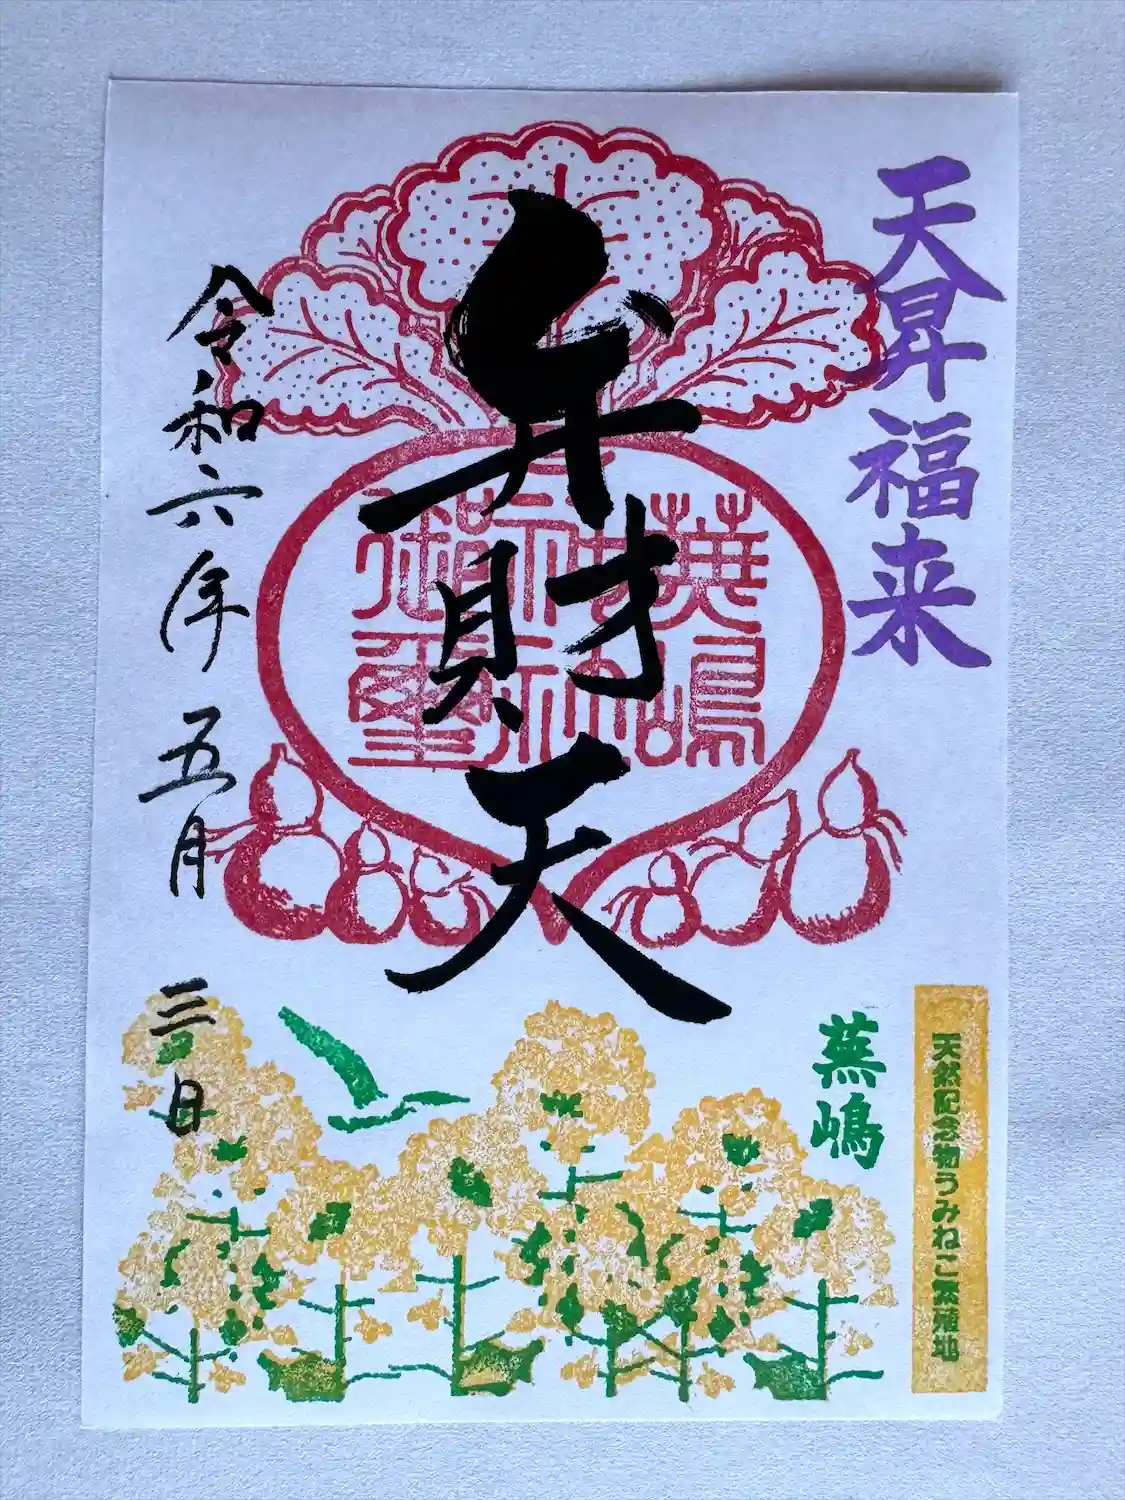 天昇福来
蕪嶋
神社
御璽
弁財天
令和六年五月三日
蕪嶋
天然記念物うみねこ繁殖地